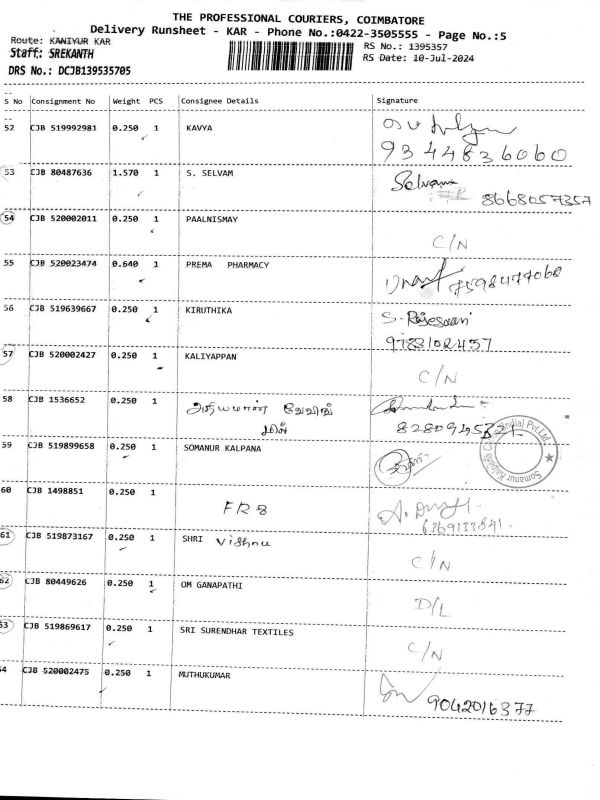 THE PROFESSIONAL COURIERS, COIMBATORE
Delivery Runsheet - KAR - Phone No.:0422-3505555 - Page No.:5
Route: KANIYUR KAR
RS No.: 1395357
Staff: SREKANTH
RS Date: 10-Jul-2024
DRS No.: DCJB139535705
S No Consignment No Weight PCS Consignee Details Signature
52 CJB 519992981 0.250 1 KAVYA
9344836060
53 CJB 80487636 1.570 1 S. SELVAM Selvam
8668057357
54 CJB 520002011 0.250 1 PAALNISMAY
C/N
55 CJB 520023474 0.640 1 PREMA PHARMACY
7598477068
56 CJB 519639667 0.250 1 KIRUTHIKA
57 CJB 520002427 0.250 1 KALIYAPPAN
C/N
58 CJB 1536652 0.250 1
59 CJB 519899658 0.250 1 SOMANUR KALPANA
60 CJB 1498851 0.250 1 FRB
6369133841
61 CJB 519873167 0.250 1 SHRI Vishnu
C/N
62 CJB 80449626 0.250 1 OM GANAPATHI
D/L
53 CJB 519869617 0.250 1 SRI SURENDHAR TEXTILES
C/N
54 CJB 520002475 0.250 1 MUTHUKUMAR
9042016377